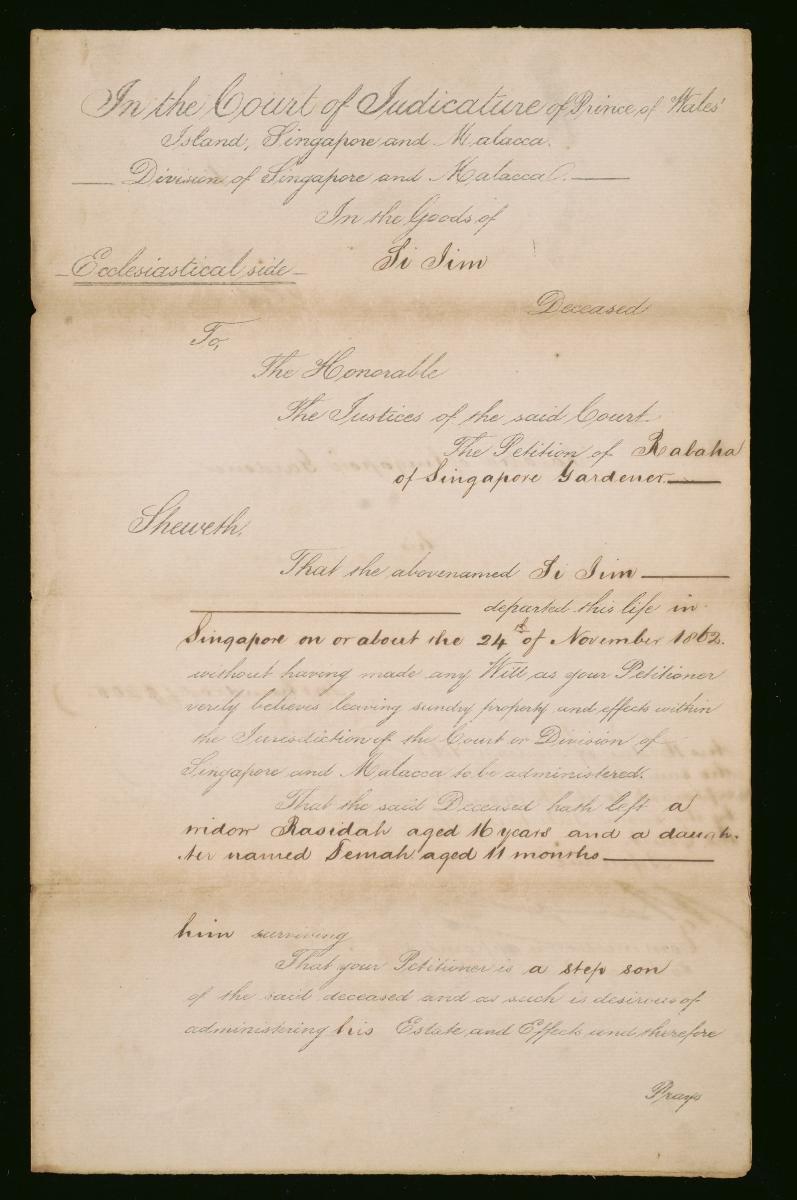 In the Court of Judicature of Prince of Wales'
Island, Singapore and Malacca.
Division of Singapore and Malacca.
In the Goods of
Ecclesiastical side Si Jim
Deceased
To,
The Honorable
The Justices of the said Court
The Petition of Rabaha
of Singapore Gardener
Sheweth,
That the abovenamed Si Jim
departed this life in
Singapore on or about the 24th of November 1862.
without having made any Will as your Petitioner
verily believes leaving sundry property and effects within
the Jurisdiction of the Court or Division of
Singapore and Malacca to be administered.
That the said Deceased hath left a
widow Rasidah aged 16 years and a daugh-
-ter named Temah aged 11 months
him surviving
That your Petitioner is a step son
of the said deceased and as such is desirous of
administering his Estate and Effects and therefore
Prays